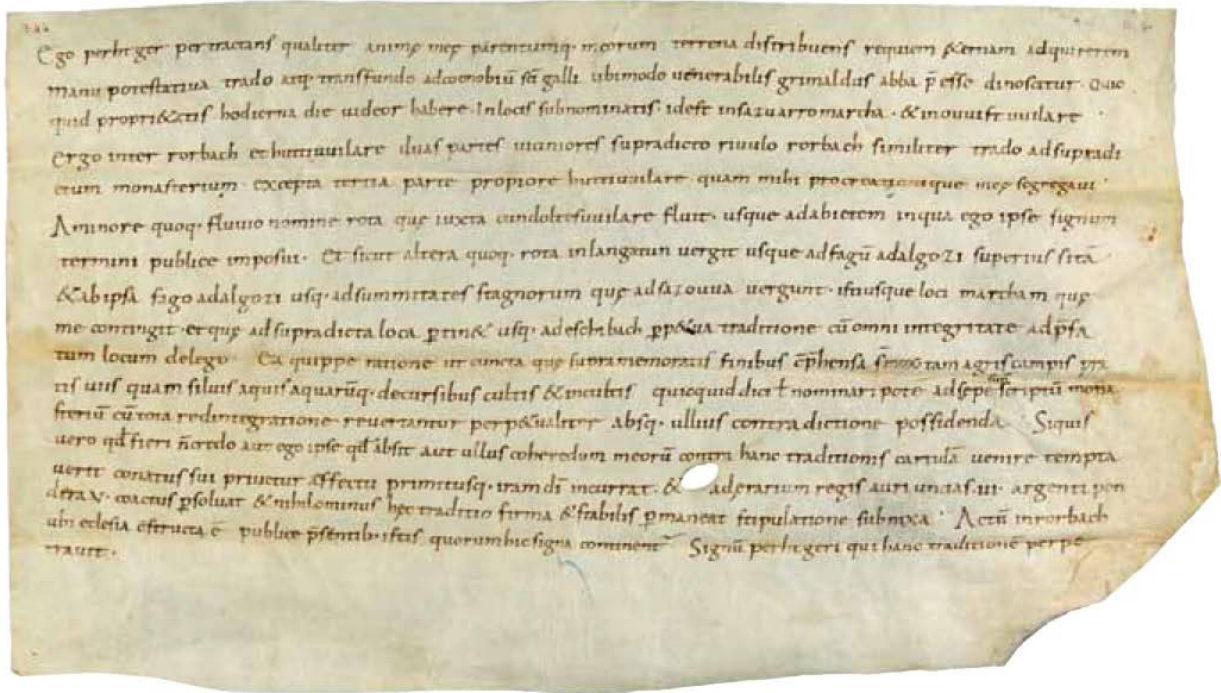 Ego perhtger pertractans qualiter animę meę parentumq· meorum terrena distribuens requiem &ernam adquirerem
manu potestatiua trado atq· transfundo adcoenobiū sc̄i galli ubimodo uenerabilis grimaldus abba p̄esse dinoscatur· Quic
quid propri&atis hodierna die uideor habere· Inlocis subnominatis· idest
ergo inter rorbach et huttiuuilare duas partes uiciniores supradicto riuulo rorbach similiter trado adsupradi
ctum monasterium· excepta tertia parte propiore huttiuuilare quam mihi procreationique meę segregaui·
Aminore quoq· fluuio nomine rota quę iuxta cundoltesuuilare fluit· usque adabietem inqua ego ipse signum
termini publice imposui· Et sicut altera quoq· rota inlangatun uergit usque adfagū adalgozi superius sitā
&abipsa fago adalgozi usq· adsummitates stagnorum quę adsazouua uergunt· istiusque loci marcham quę
me contingit· et quę adsupradicta loca ptin& usq· adeschibach pp&ua traditione cū omni integritate adp̄fa
tum locum delego· Ea quippe ratione ut cuncta quę supramemoratis finibus cp̄hensa tam agris campis pra
tis uiis quam siluis aquis aquarūq· decursibus cultis &incultis quicquid dici ł nominari pote adsepe scriptū mona
steriū cū tota redintegratione reuertantur perp&ualiter absq· ullius contradictione possidenda· Siquis
uero qđ fieri n̄ credo aut ego ipse qđ absit aut ullus coheredum meorū contra hanc traditionis cartulā uenire tempta
uerit conatus sui priuetur effectu primitusq· iram dī incurrat· & aderarium regis auri uncias· iii· argenti pon
dera v· coactus psoluat &nihilominus hęc traditio firma &stabilis pmaneat stipulatione subnixa· Actū inrorbach
ubi eclesia cstructa ē publice p̄sentib· istis quorum hic signa continent Signū perhtgeri qui hanc traditionē perpe
trauit·